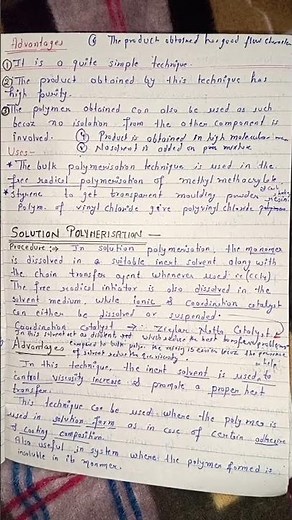 Advantages ⑥ The product obtained has good flow
① It is a quite simple technique.
② The product obtained by this technique has
high purity.
③ The polymer obtained can also be used as such
becoz no isolation from the other component is
involved. ④ Product is obtained in high molecular
⑤ No solvent is added so pure
Uses-
* The bulk polymerisation technique is used in the
free radical polymerisation of methyl methacrylate
* Styrene to get transparent moulding powder
Polym. of vinyl chloride give polyvinyl chloride
SOLUTION POLYMERISATION -
Procedure :→ In solution polymerisation, the monomer
is dissolved in a suitable inert solvent along with
the chain transfer agent whenever used is (CCl4).
The free radical initiator is also dissolved in the
solvent medium, while ionic & coordination catalyst
can either be dissolved or suspended.
Coordination catalyst → : Zeigler Natta Catalyst
In this solvent act as diluent and which reduce the heat transfer problem
Advantages compare to bulk the mixing is easier since the presence
of solvent reduce the viscosity.
In this technique, the inert solvent is used to help
control viscosity increase & promote a proper heat
transfer.
This technique can be used where the polymer is
used in solution form as in case of certain adhesive
& coating composition.
Also useful in system where the polymer formed is
insoluble in its monomer.